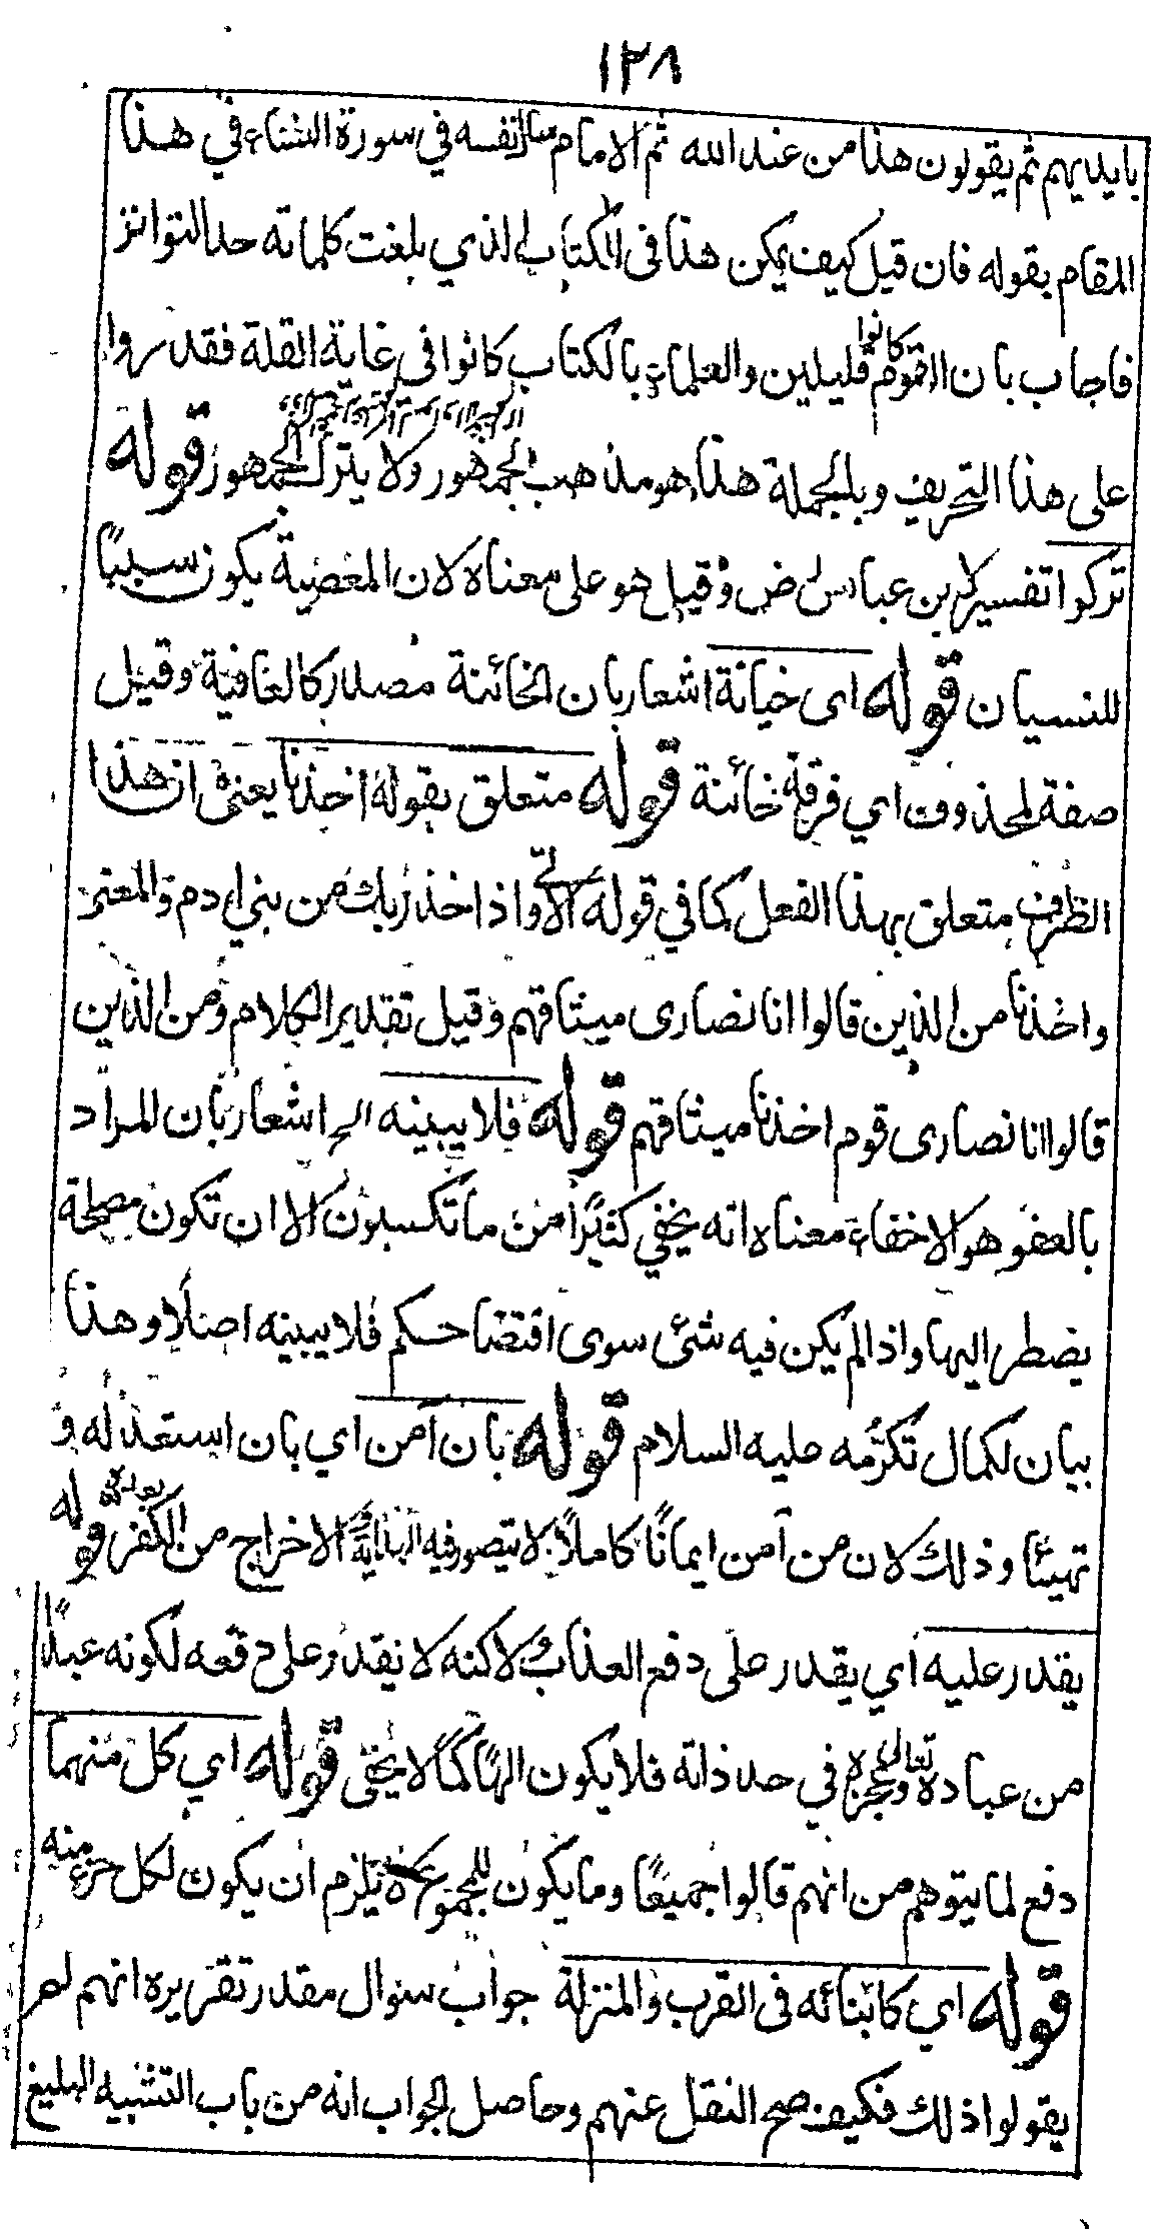 ١٢٨
بايديهم ثم يقولون هذا من عند الله ثم الامام سال نفسه في سورة النساء في هذا
المقام بقوله فان قيل كيف يمكن هذا فى الكتاب الذي بلغت كلماته حد التواتر
فاجاب بان القوم كانوا قليلين والعلماء بالكتاب كانوا فى غاية القلة فقدروا
على هذا التحريف وبالجملة هذا هو مذهب الجمهور ولا يترك الجمهور قوله
تركوا تفسير لابن عباس رض وقيل هو على معناه لان المعصية يكون سببًا
للنسيان قوله اى خيانة اشعار بان الخائنة مصدر كالعافية وقيل
صفة لمحذوف اي فرقة خائنة قوله متعلق بقوله اخذنا يعنى ان هذا
الظرف متعلق بهذا الفعل كما في قوله الاتي واذ اخذ ربك من بني ادم والمعنى
واخذنا من الذين قالوا انا نصارى ميثاقهم وقيل تقدير الكلام ومن الذين
قالوا انا نصارى قوم اخذنا ميثاقهم قوله فلا يبينه الخ اشعار بان المراد
بالعفو هو الاخفاء معناه انه يخفي كثيرًا من ما تكسبون الا ان تكون مصلحة
يضطر اليها واذا لم يكن فيه شئ سوى افتضاحكم فلا يبينه اصلا وهذا
بيان لكمال تكرّمه عليه السلام قوله بان آمن اي بان استعد له و
تهيئا وذلك لان من آمن ايمانًا كاملًا لا يتصور فيه الهداية الاخراج من الكفر قوله
يقدر عليه اي يقدر على دفع العذاب ولاكنه لا نقدر على دفعه لكونه عبدًا
من عباده تعالى وعجزه في حد ذاته فلا يكون الهًا كما لا يخفى قوله اي كل منهما
دفع لما يتوهم من انهم قالوا جميعًا وما يكون للمجموع لا يلزم ان يكون لكل جزء منه
قوله اي كابنائه فى القرب والمنزلة جواب سئوال مقدر تقريره انهم لم
يقولوا ذلك فكيف صح النقل عنهم وحاصل الجواب انه من باب التشبيه البليغ